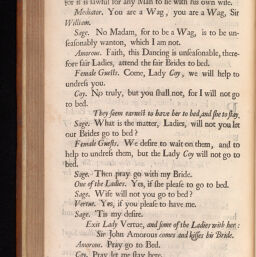 for it is lawful for any Man to lie with his own wife.
Mediator. You are a Wag, you are a Wag, Sir
William.
Sage. No Madam, for to be a Wag, is to be un-
seasonably wanton, which I am not.
Amorous. Faith, this Dancing is unseasonable, there-
fore fair Ladies, attend the fair Brides to Bed.
Female Guests. Come, Lady Coy, we will help to
undress you.
Coy. No truly, but you shall not, for I will not go
to bed.
They seem earnest to have her to bed, and she to stay.
Sage. What is the matter, Ladies, will not you let
our Brides go to bed?
Female Guests. We desire to wait on them, and to
help to undress them, but the Lady Coy will not go to
bed.
Sage. Then pray go with my Bride.
One of the Ladies. Yes, if she please to go to bed.
Sage. Wife will not you go to bed?
Vertue. Yes, if you please to have me.
Sage. 'Tis my desire.
Exit Lady Vertue, and some of the Ladies with her:
Sir John Amorous comes and kisses his Bride.
Amorous. Pray go to Bed.
Coy. Pray let me stay here.